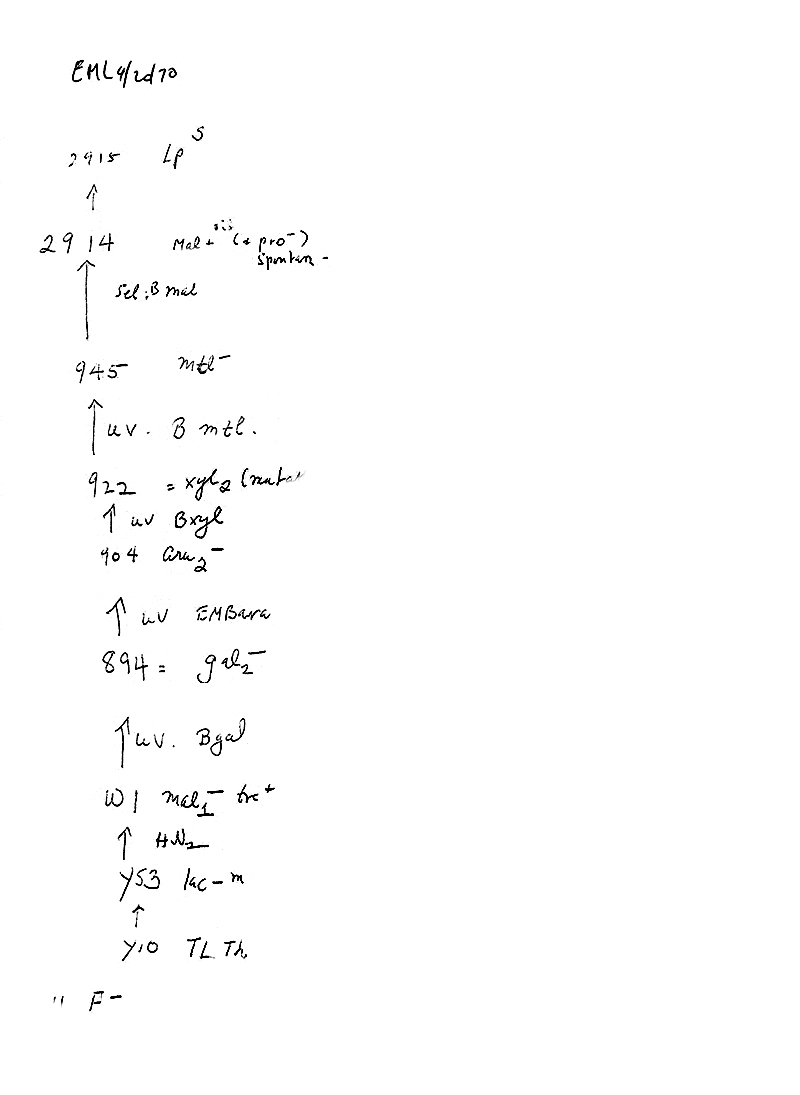 EML 4/2d70
2915 Lp S
2914 Mal+ (+ pro-)
Spontan -
Sel: B mal
945 mtl-
uv. B mtl.
922 = xyl2 (mutan
uv Bxyl
904 ara2-
uv EMBara
894 = gal2-
uv. Bgal
W1 mal1-
HN2
Y53 lac-m
Y10 TL Th
" F-